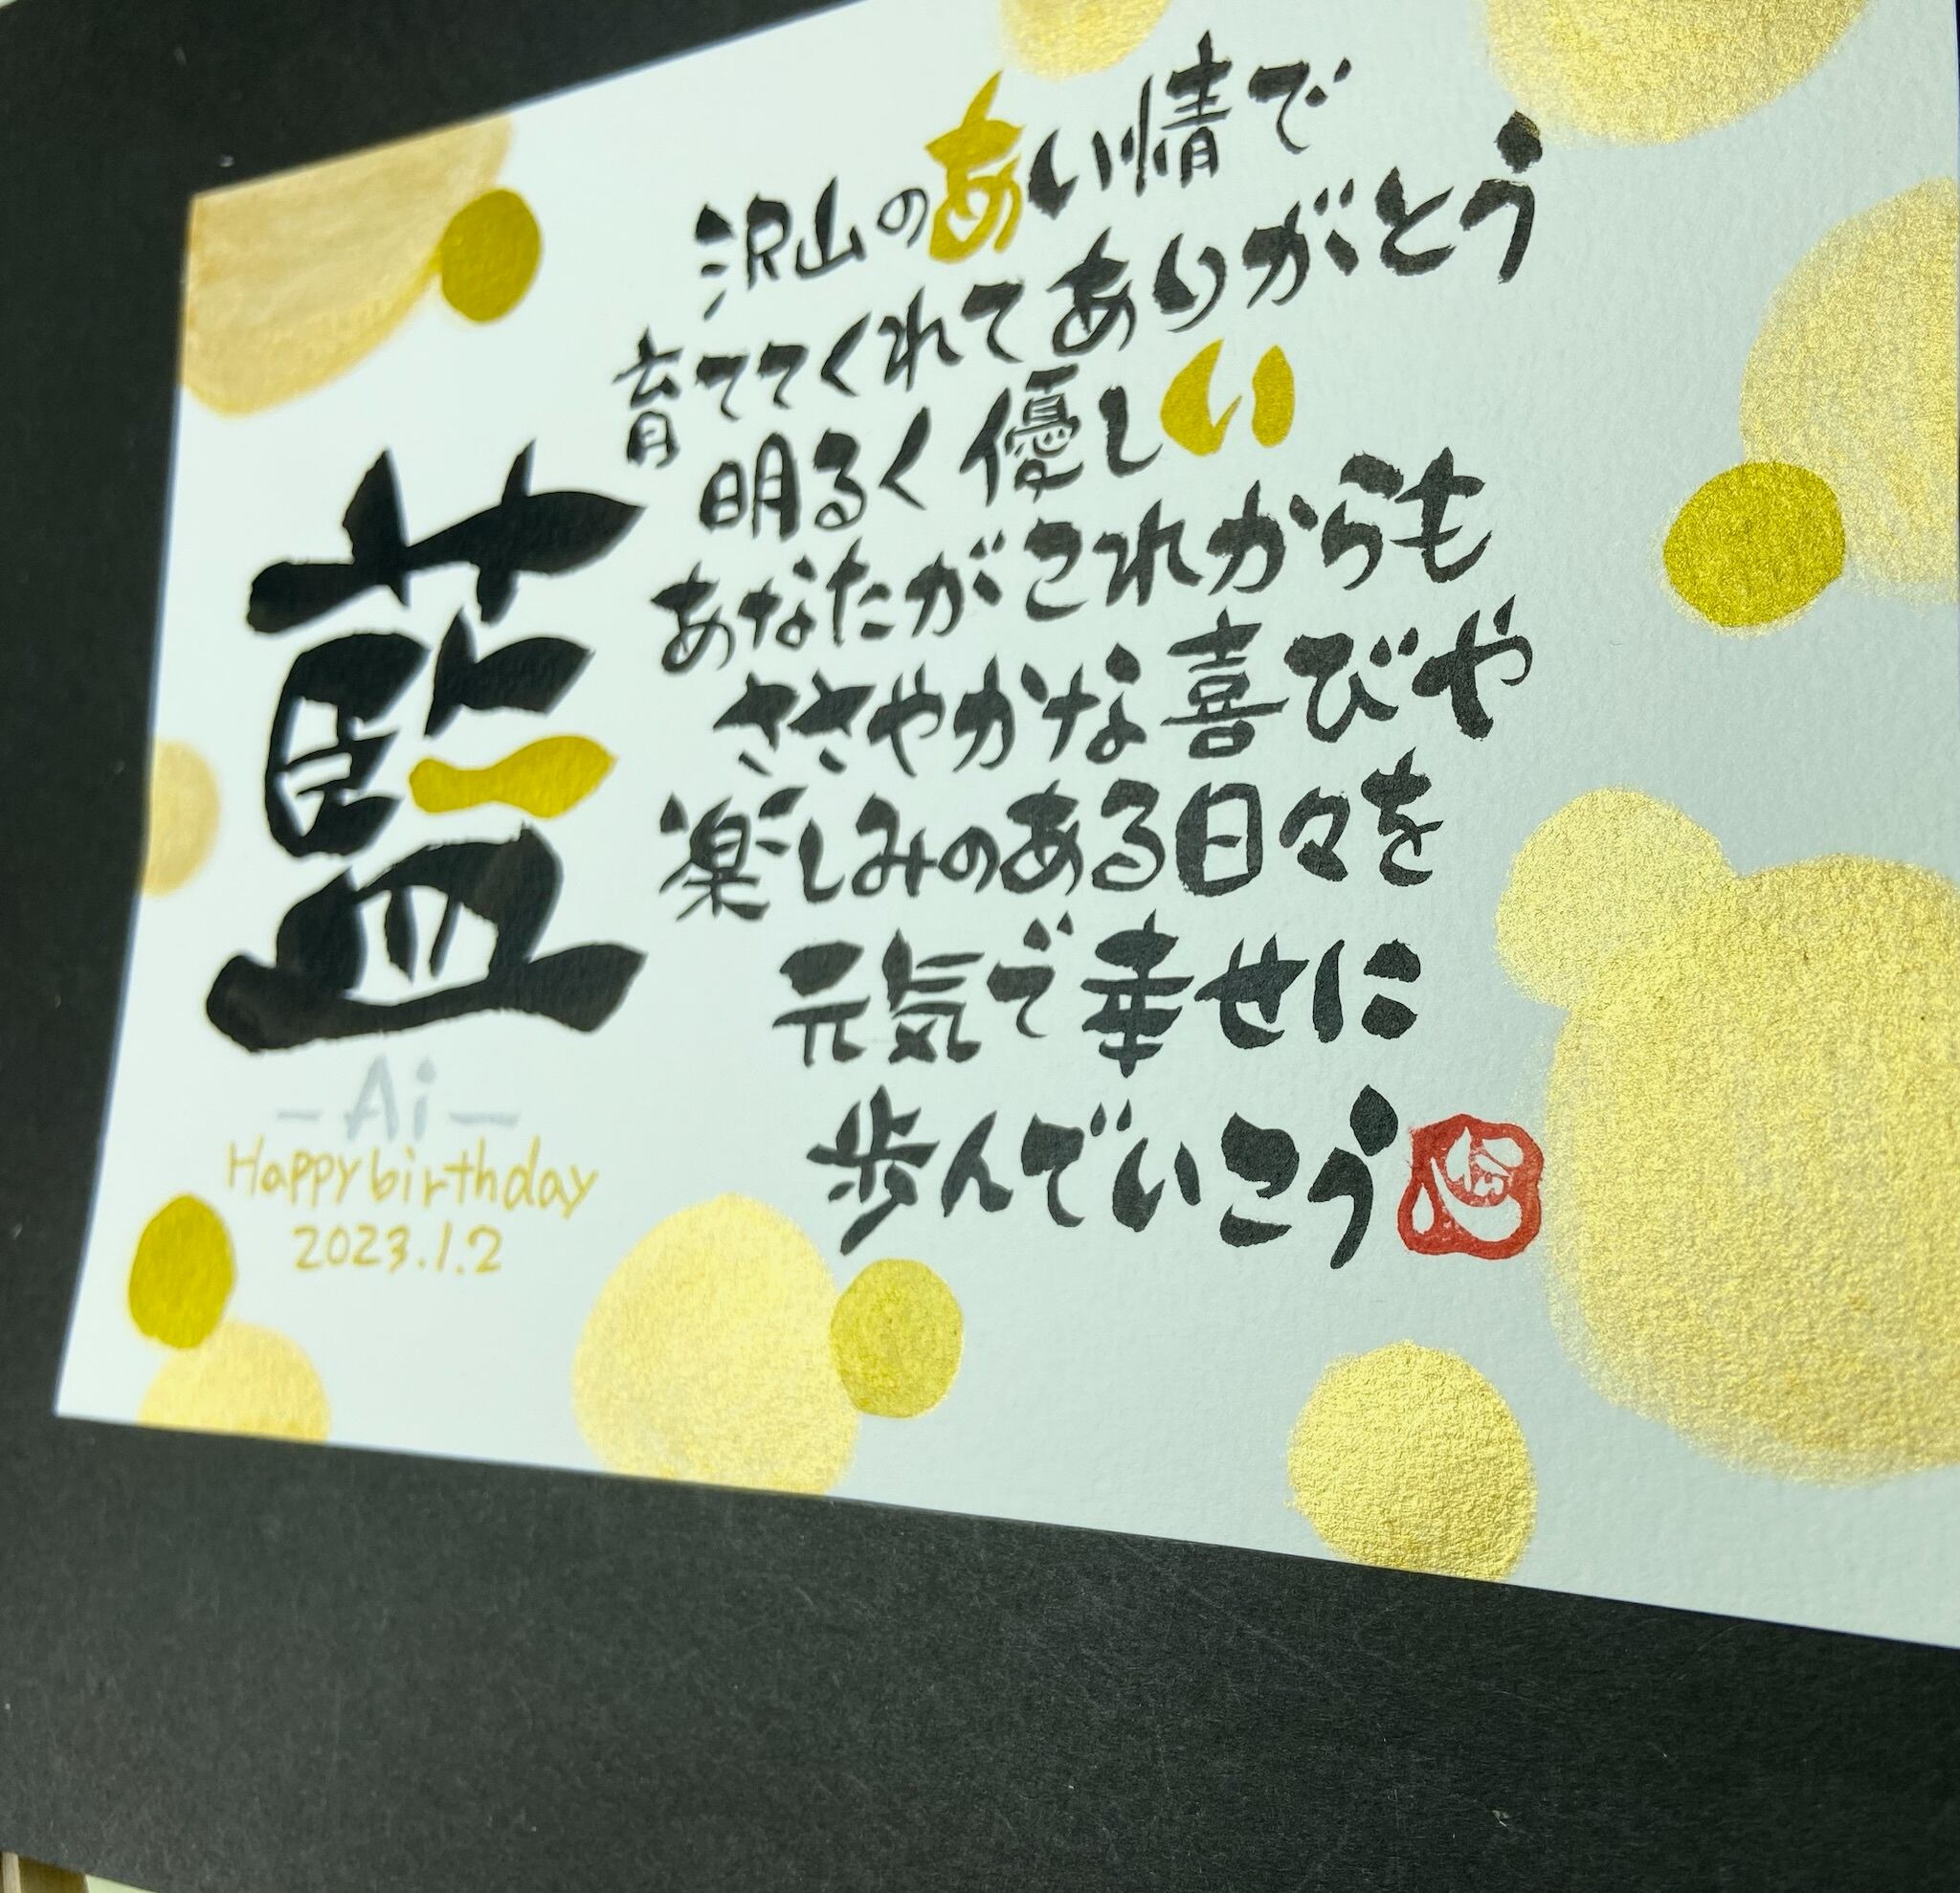 藍
Ai
Happy birthday
2023.1.2
沢山のあい情で
育ててくれてありがとう
明るく優しい
あなたがこれからも
ささやかな喜びや
楽しみのある日々を
元気で幸せに
歩んでいこう